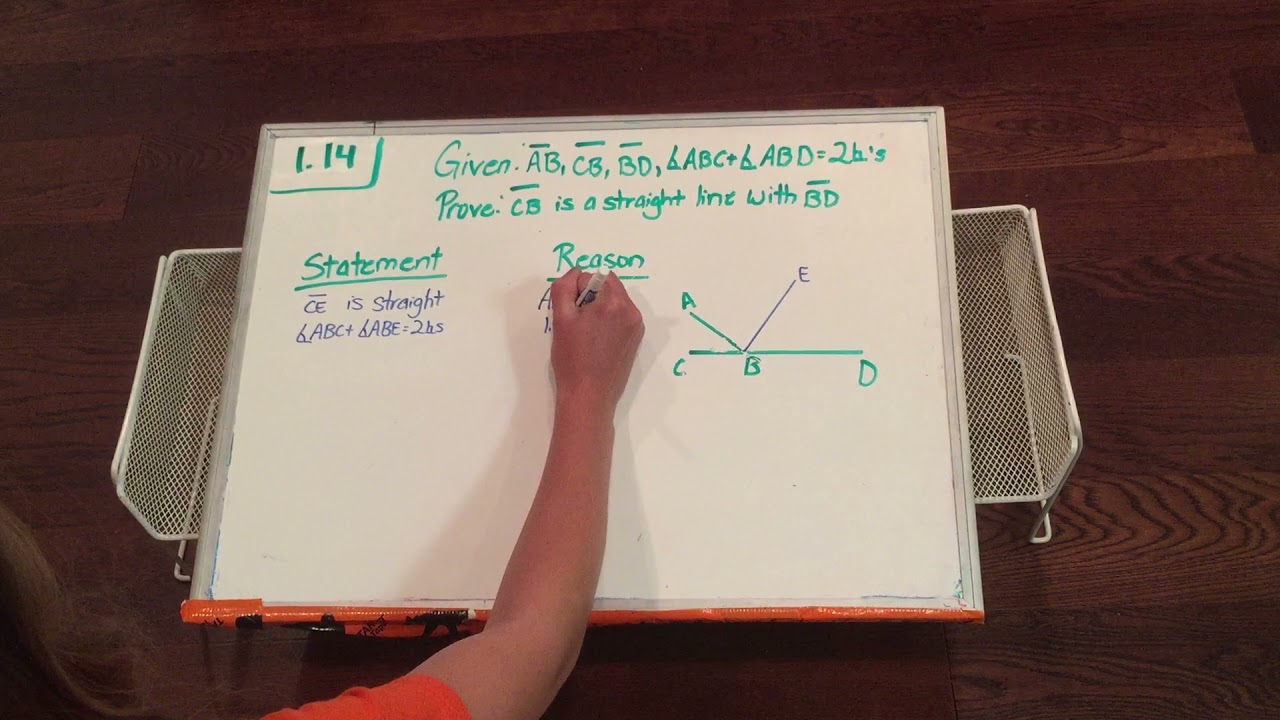 1.14
Given: A̅B̅, C̅B̅, B̅D̅, ∡ABC+∡ABD=2⊾'s
Prove: C̅B̅ is a straight line with B̅D̅
Statement
Reason
C̅E̅ is straight
∡ABC+∡ABE=2⊾s
E
A
C
B
D